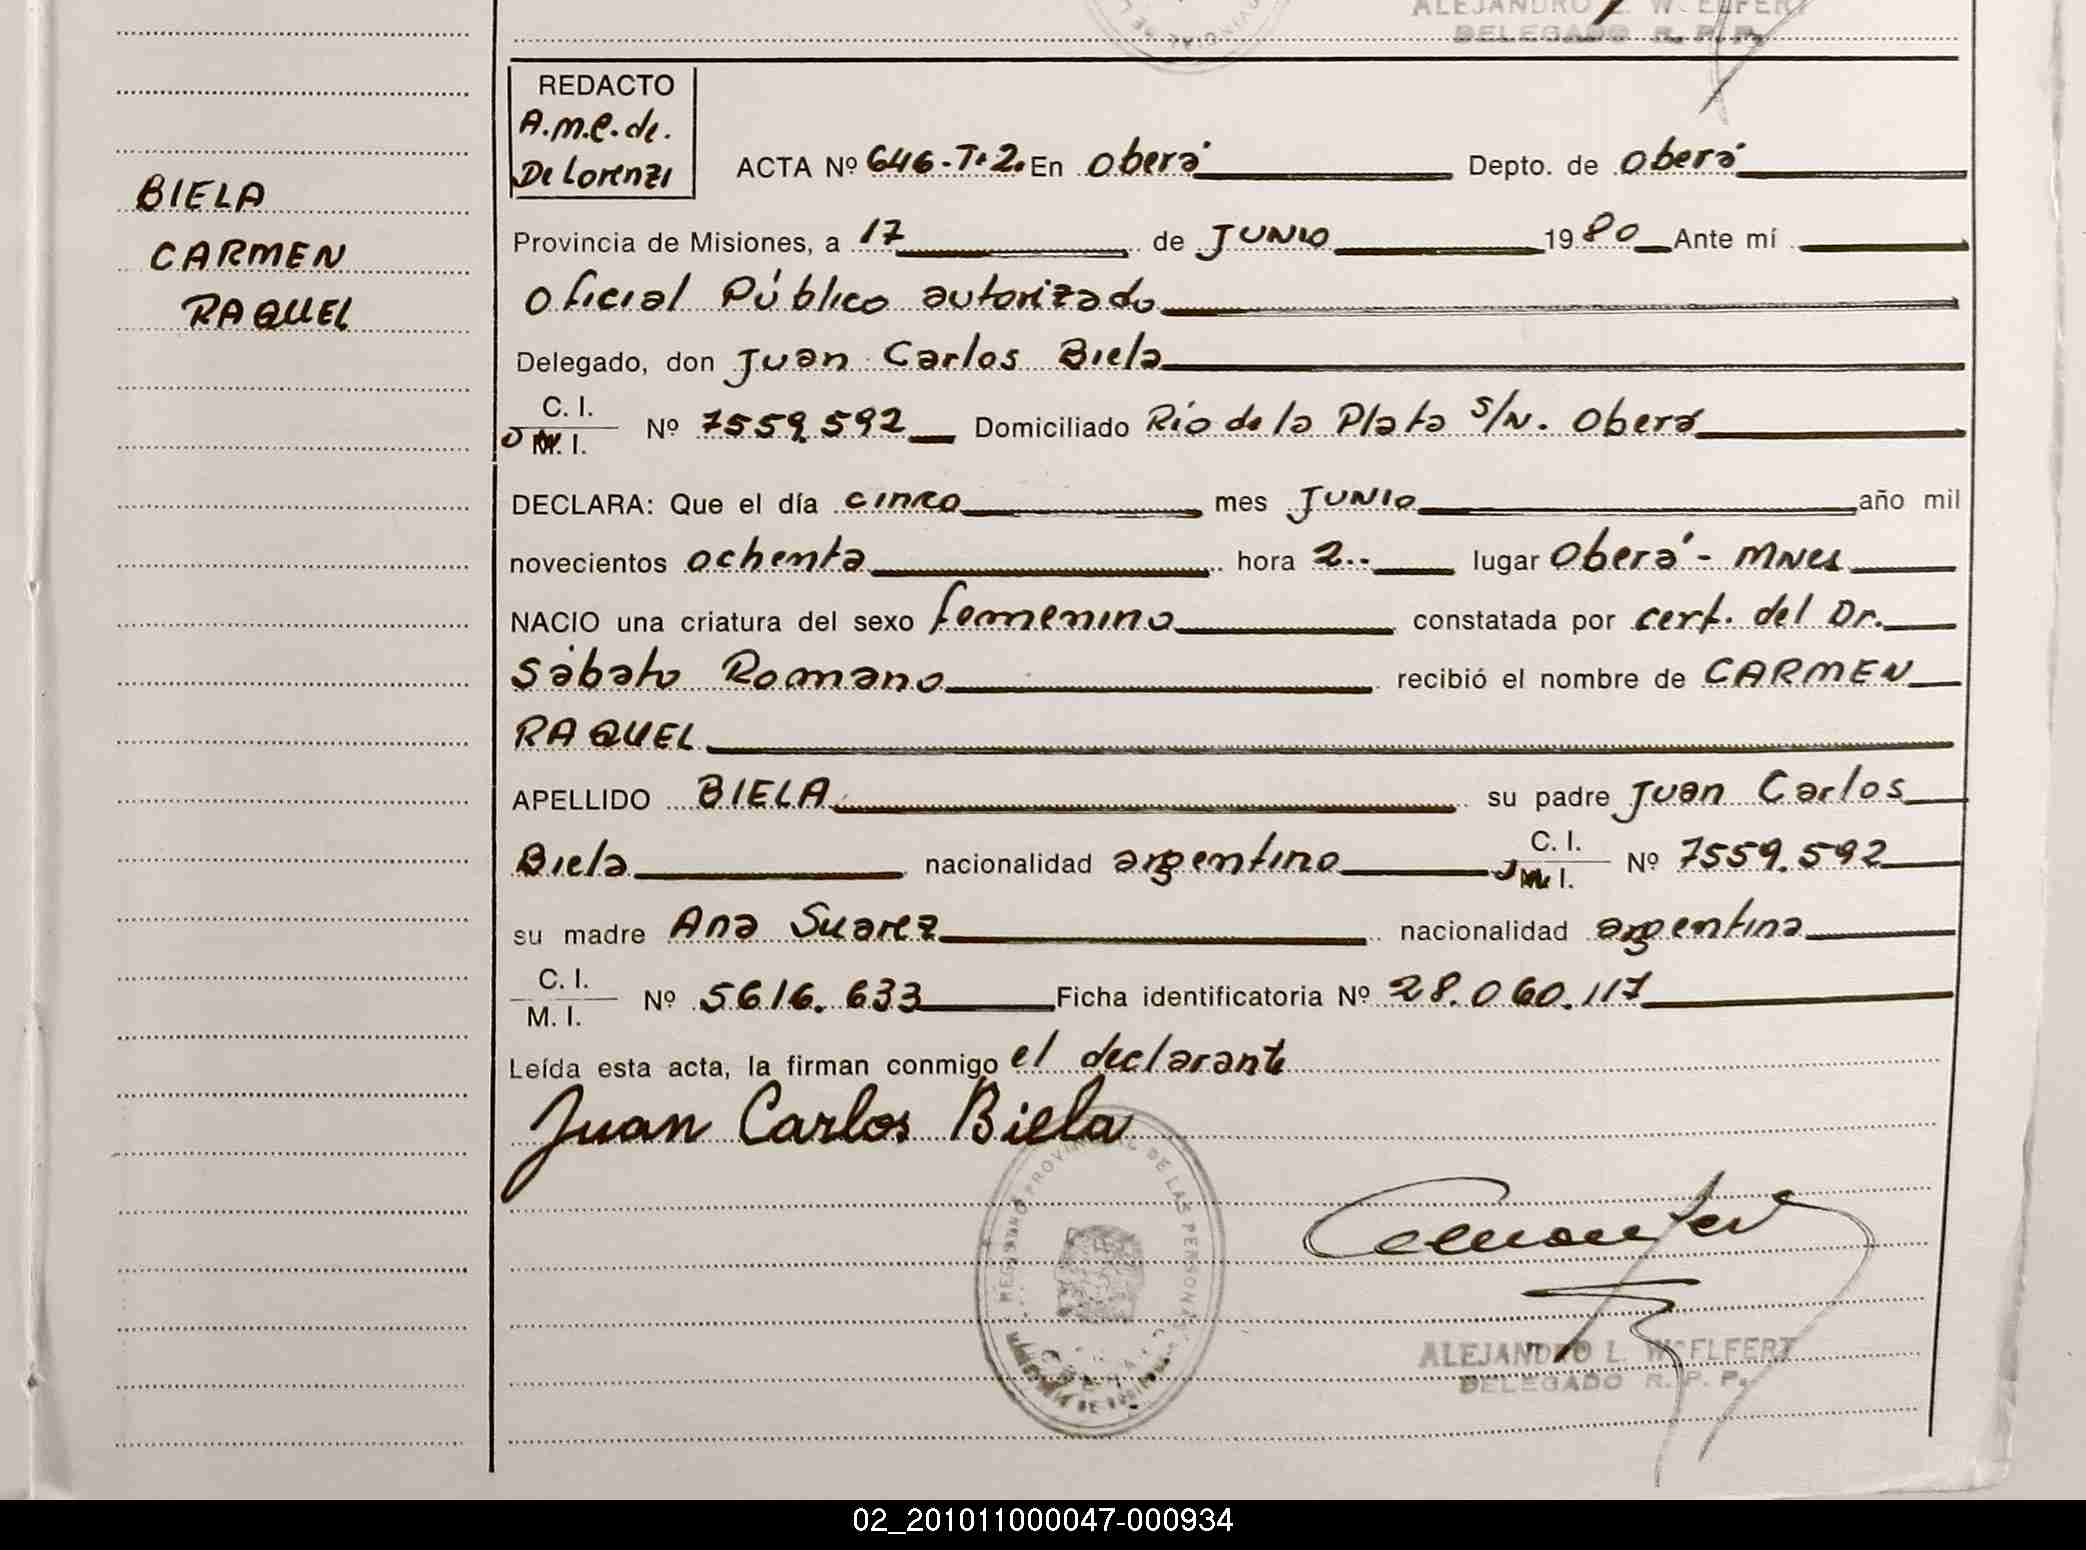 ALEJANDRO L. W. ELFERT
DELEGADO R. P. P.
REDACTO
A.m.e.de.
De Lorenzi
ACTA Nº 646-T.2. En Oberá Depto. de Oberá
BIELA
CARMEN
RAQUEL
Provincia de Misiones, a 17 de JUNIO 1980 Ante mí
Oficial Público autorizado
Delegado, don Juan Carlos Biela
C. I.
M. I. Nº 7559.592 Domiciliado Río de la Plata S/N. Oberá
DECLARA: Que el día cinco mes JUNIO año mil
novecientos ochenta hora 2.. lugar Oberá - MNes
NACIO una criatura del sexo femenino constatada por cert. del Dr.
Sábato Romano recibió el nombre de CARMEN
RAQUEL
APELLIDO BIELA su padre Juan Carlos
Biela nacionalidad argentino C. I. M. I. Nº 7559.592
su madre Ana Suarez nacionalidad argentina
C. I.
M. I. Nº 5616.633 Ficha identificatoria Nº 28.060.117
Leída esta acta, la firman conmigo el declarante
Juan Carlos Biela
REGISTRO PROVINCIAL DE LAS PERSONAS
ALEJANDRO L. W. ELFERT
DELEGADO R. P. P.
02_201011000047-000934